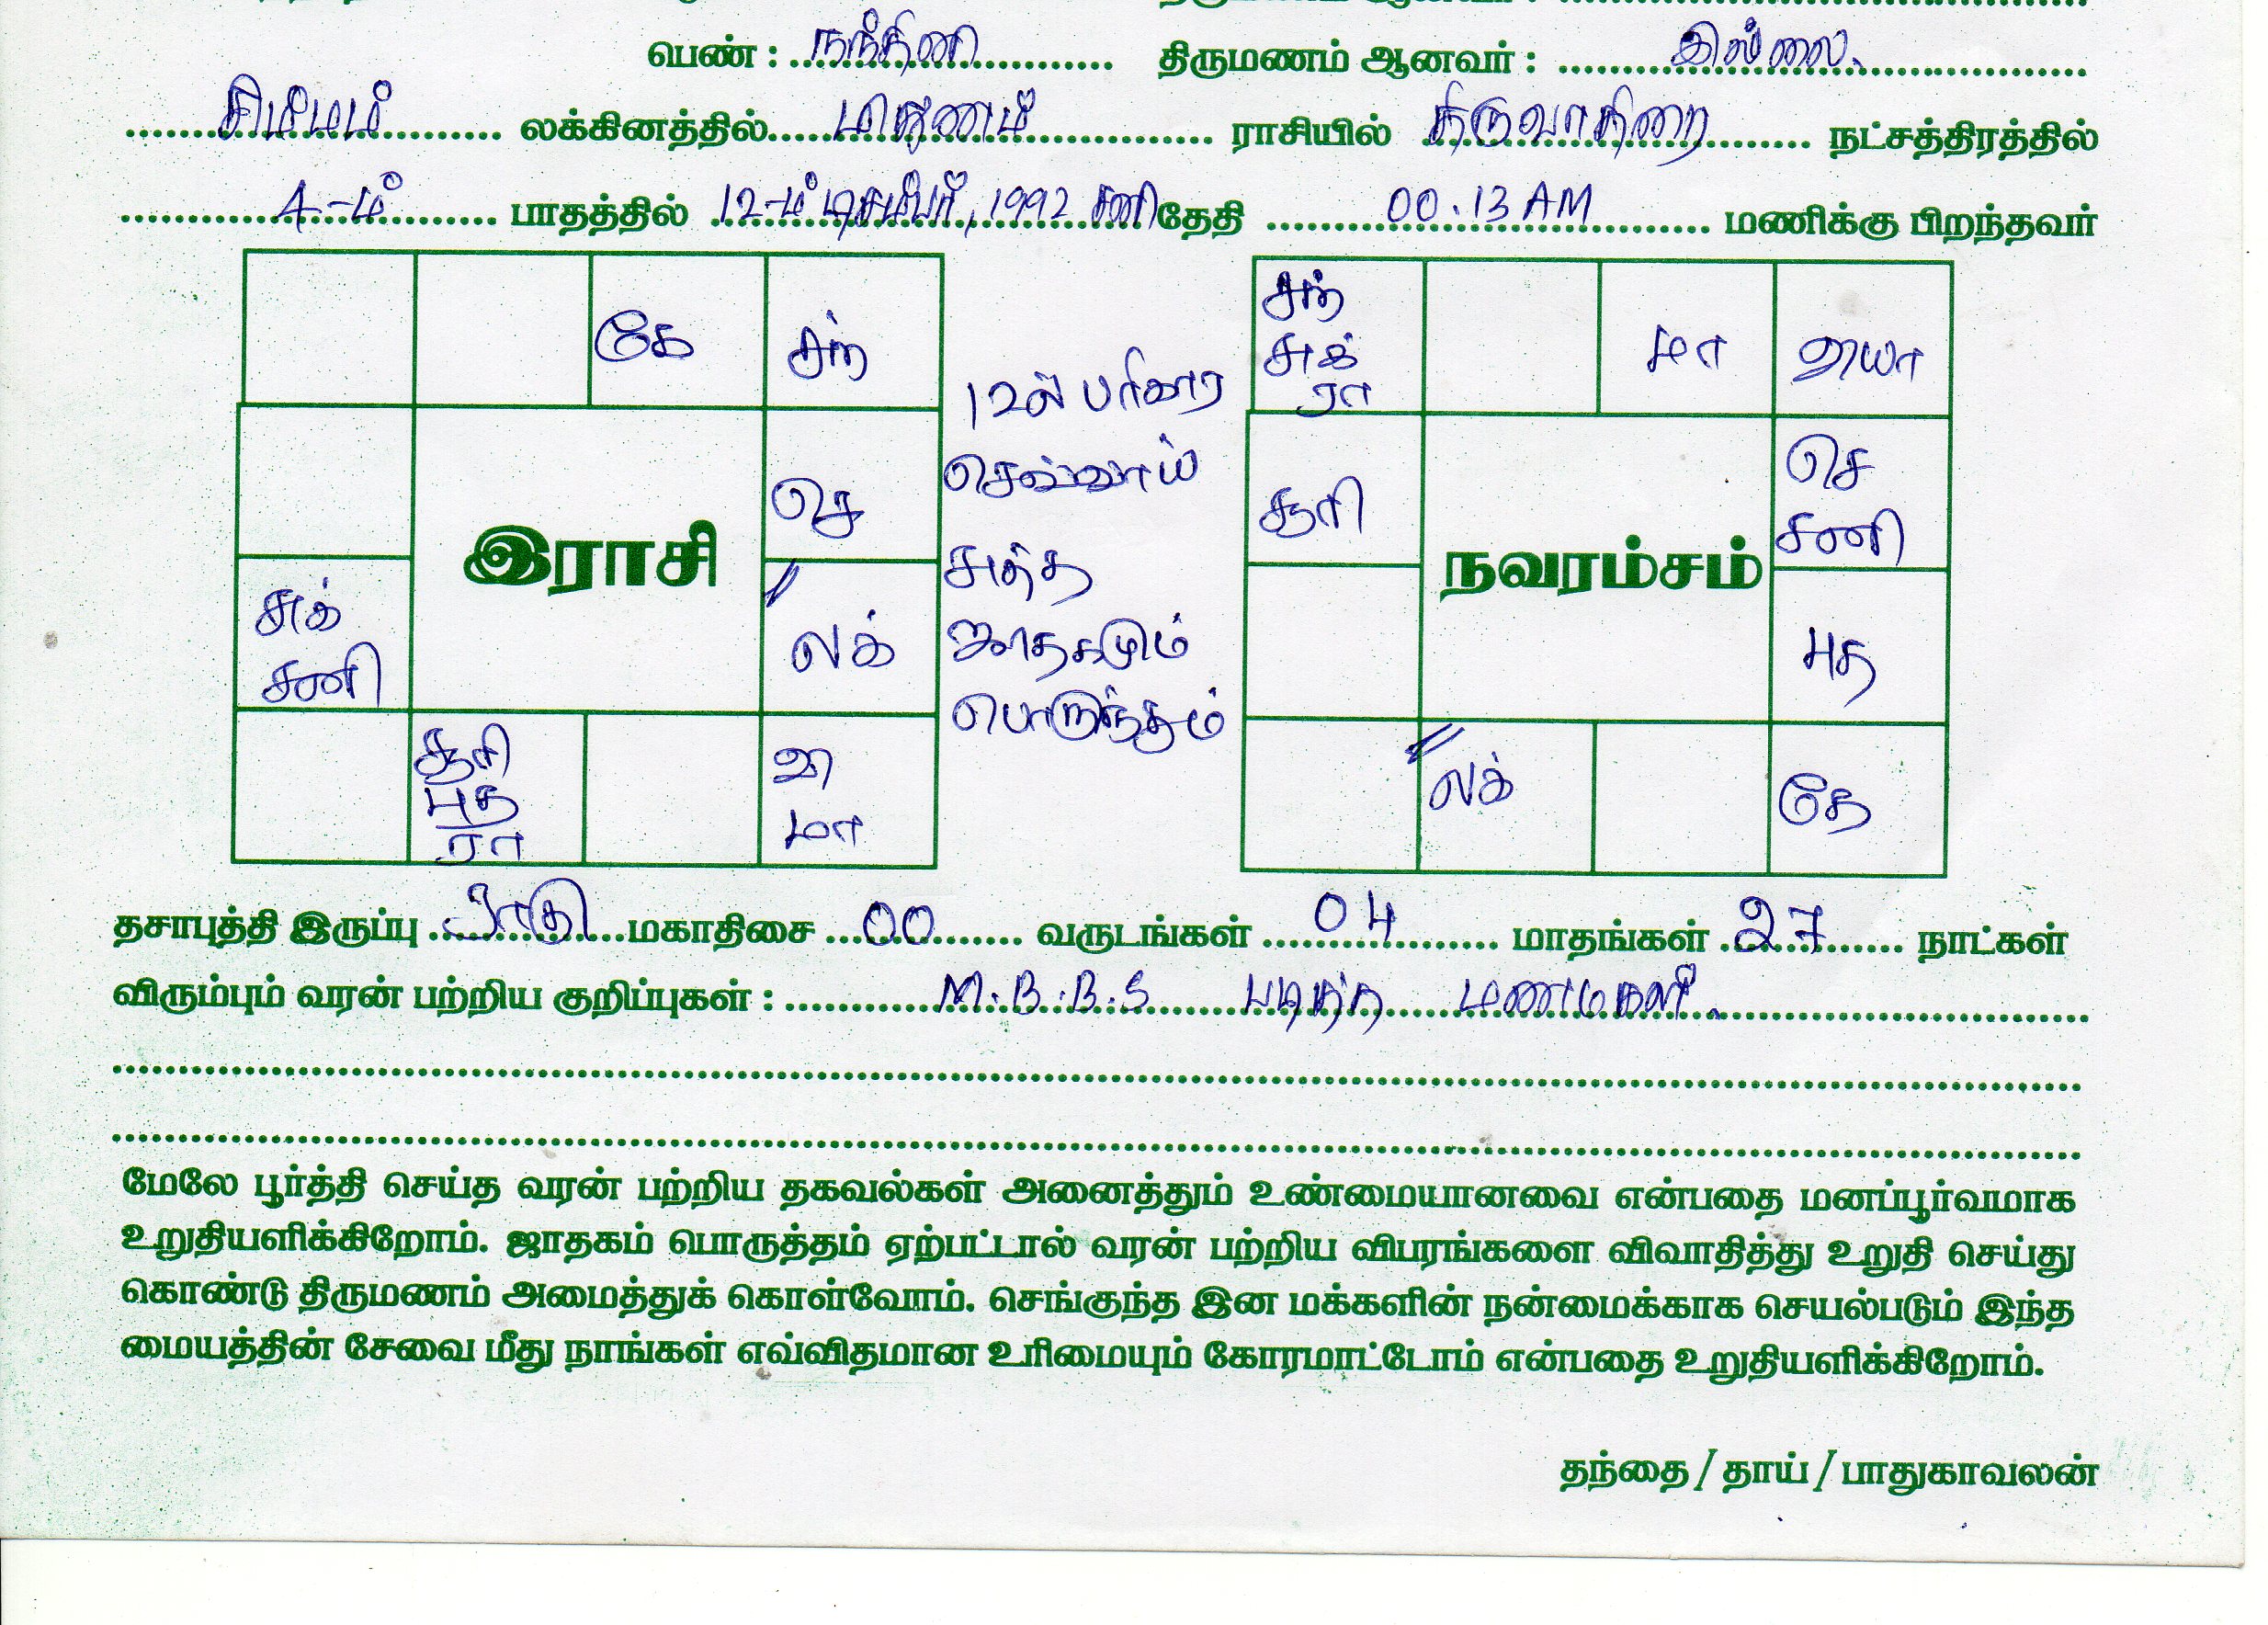 பெண் : நந்தினி திருமணம் ஆனவர் : இல்லை.
சிம்மம் லக்கினத்தில் மிதுனம் ராசியில் திருவாதிறை நட்சத்திரத்தில்
4-ம் பாதத்தில் 12-ம் டிசம்பர், 1992 சனி தேதி 00.13 AM மணிக்கு பிறந்தவர்
கே சந்
செ
இராசி
சுக்
சனி
லக்
சூரி
புத
ரா
மா
12ல் பரிகார
செவ்வாய்
சுத்த
ஜாதகமும்
பொருந்தும்
சந்
சுக்
ரா
மா
சூரி
செ
சனி
நவரம்சம்
புத
லக்
கே
தசாபுத்தி இருப்பு ராகு மகாதிசை 00 வருடங்கள் 04 மாதங்கள் 27 நாட்கள்
விரும்பும் வரன் பற்றிய குறிப்புகள் : M.B.B.S படித்த மணமகன்.
மேலே பூர்த்தி செய்த வரன் பற்றிய தகவல்கள் அனைத்தும் உண்மையானவை என்பதை மனப்பூர்வமாக
உறுதியளிக்கிறோம். ஜாதகம் பொருத்தம் ஏற்பட்டால் வரன் பற்றிய விபரங்களை விவாதித்து உறுதி செய்து
கொண்டு திருமணம் அமைத்துக் கொள்வோம். செங்குந்த இன மக்களின் நன்மைக்காக செயல்படும் இந்த
மையத்தின் சேவை மீது நாங்கள் எவ்விதமான உரிமையும் கோரமாட்டோம் என்பதை உறுதியளிக்கிறோம்.
தந்தை / தாய் / பாதுகாவலன்